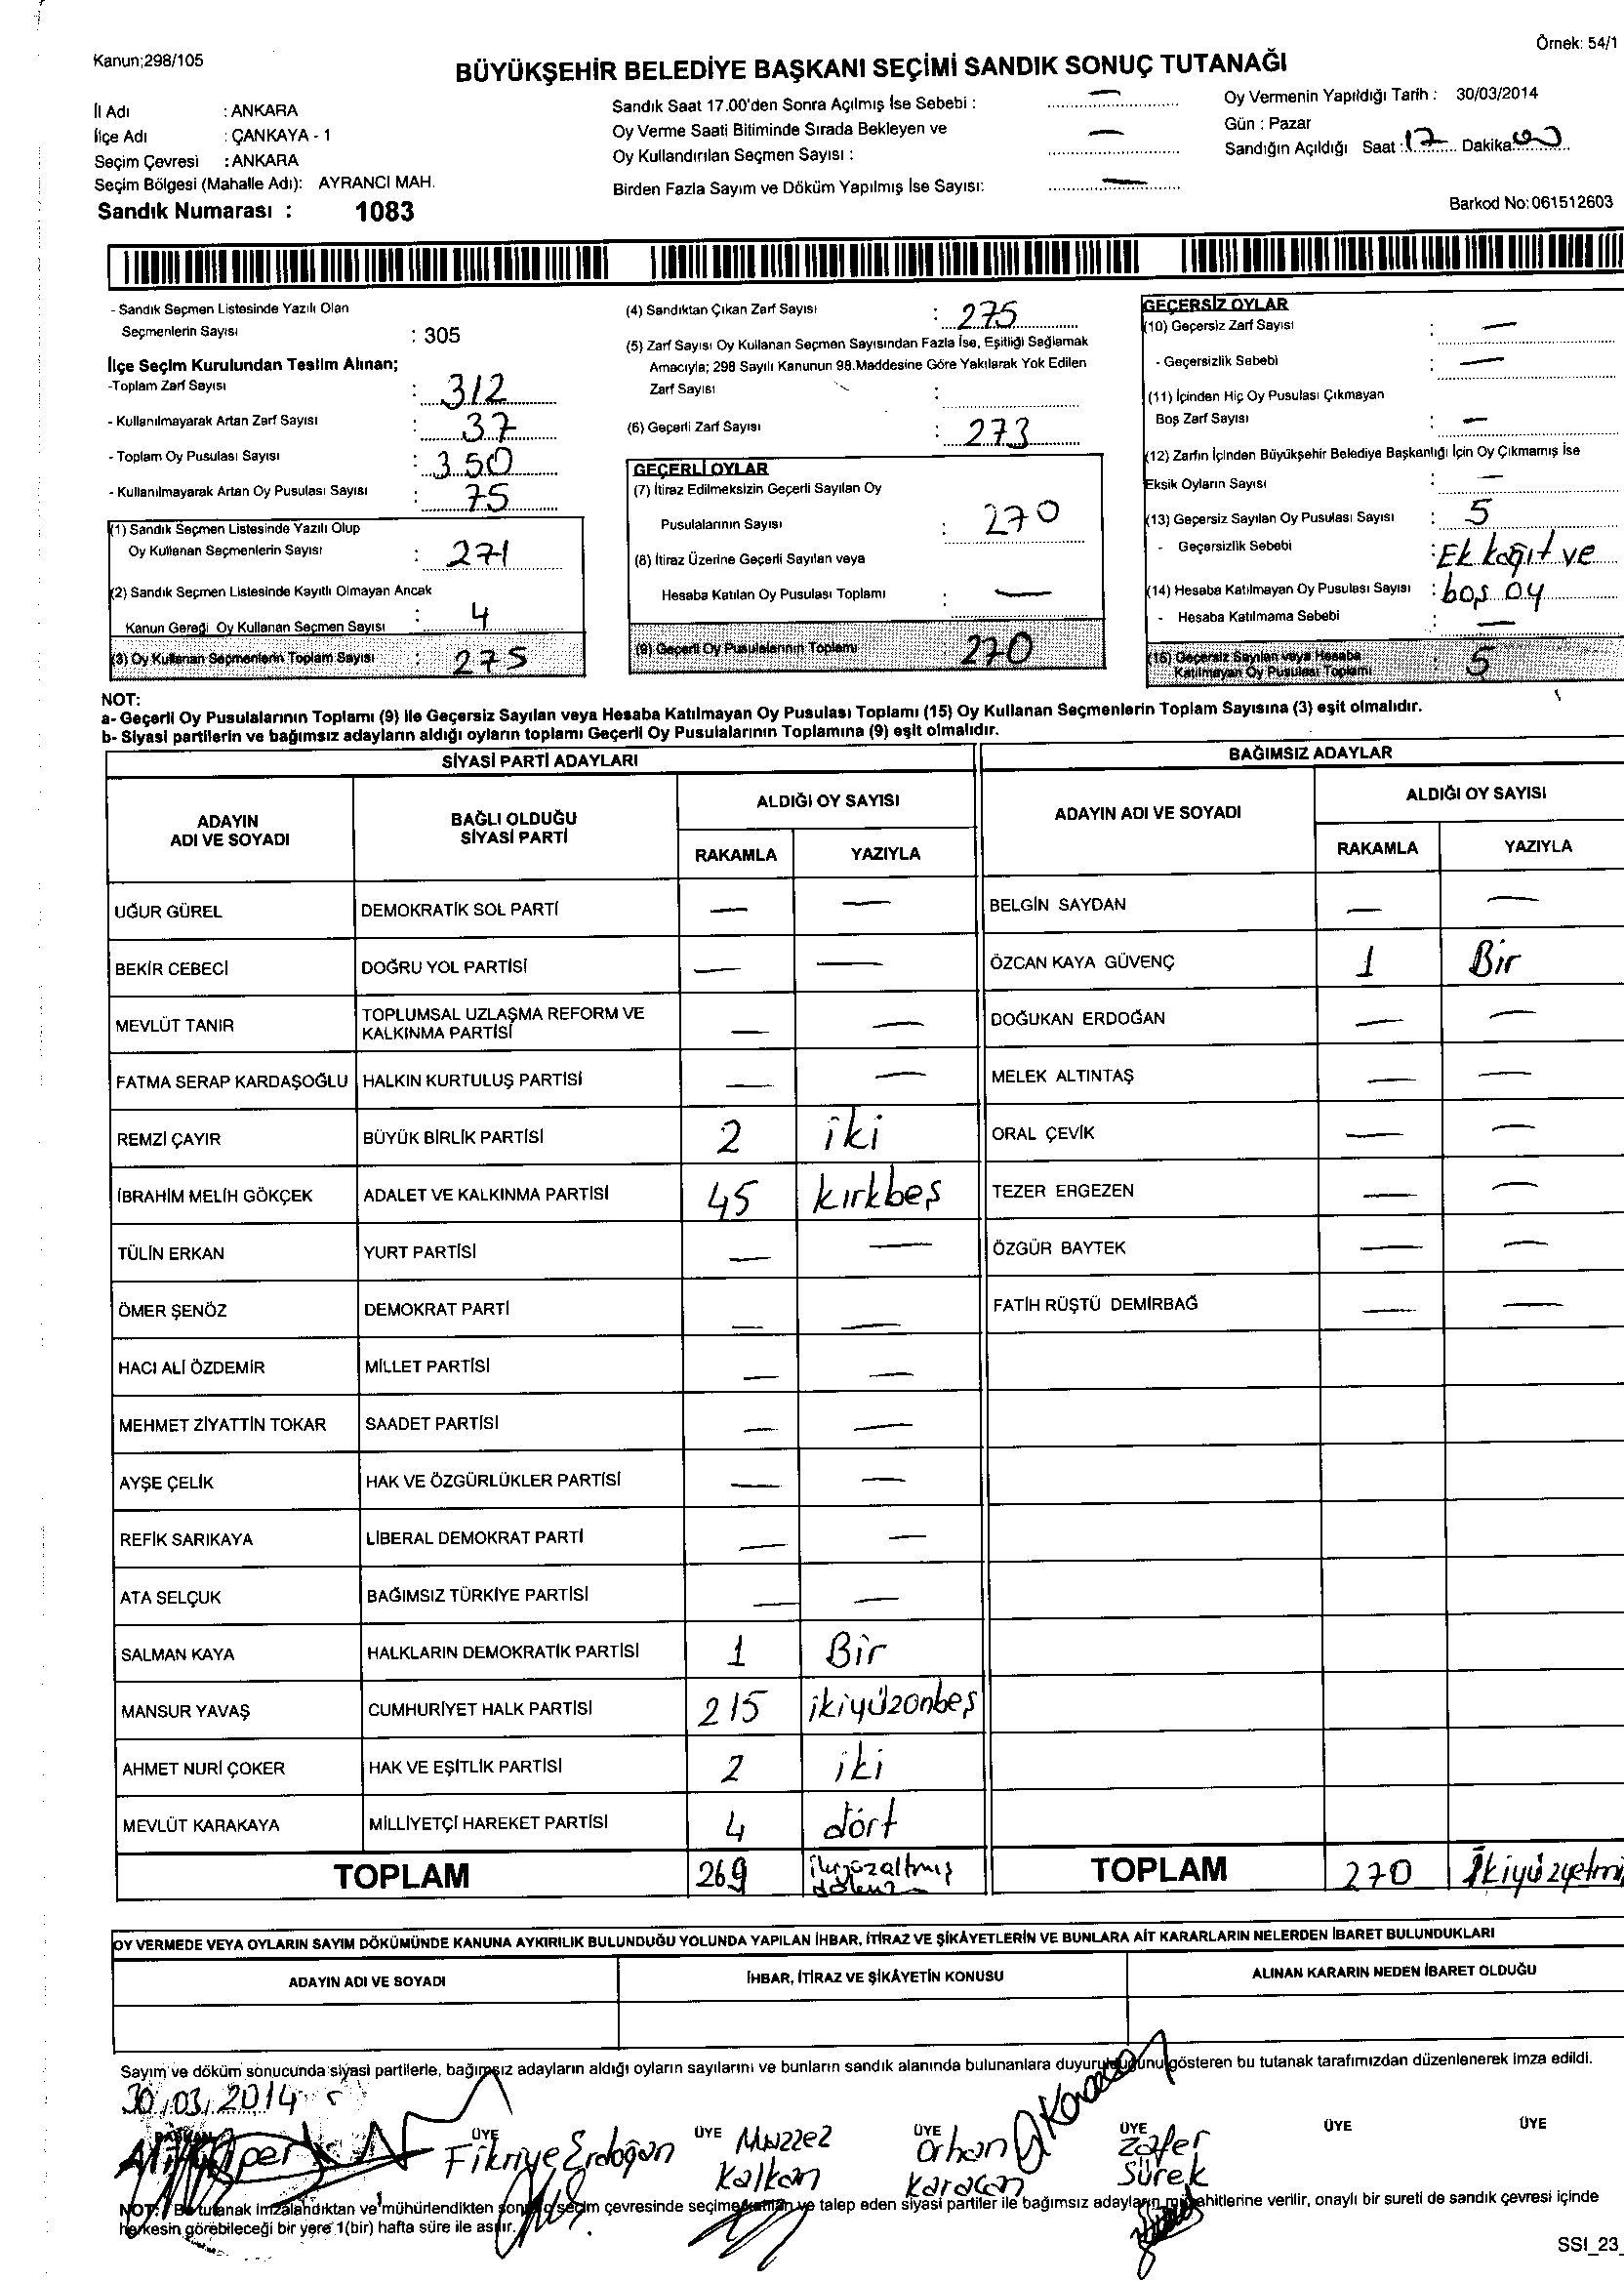 Kanun;298/105
Örnek: 54/1
BÜYÜKŞEHİR BELEDİYE BAŞKANI SEÇİMİ SANDIK SONUÇ TUTANAĞI
İl Adı : ANKARA
İlçe Adı : ÇANKAYA - 1
Seçim Çevresi : ANKARA
Seçim Bölgesi (Mahalle Adı): AYRANCI MAH.
Sandık Numarası : 1083
Sandık Saat 17.00'den Sonra Açılmış İse Sebebi : —
Oy Verme Saati Bitiminde Sırada Bekleyen ve
Oy Kullandırılan Seçmen Sayısı : —
Birden Fazla Sayım ve Döküm Yapılmış İse Sayısı: —
Oy Vermenin Yapıldığı Tarih : 30/03/2014
Gün : Pazar
Sandığın Açıldığı Saat : 17 Dakika: 00
Barkod No:061512603
- Sandık Seçmen Listesinde Yazılı Olan
Seçmenlerin Sayısı : 305
İlçe Seçim Kurulundan Teslim Alınan;
-Toplam Zarf Sayısı : 312
- Kullanılmayarak Artan Zarf Sayısı : 37
- Toplam Oy Pusulası Sayısı : 350
- Kullanılmayarak Artan Oy Pusulası Sayısı : 75
(1) Sandık Seçmen Listesinde Yazılı Olup
Oy Kullanan Seçmenlerin Sayısı : 271
(2) Sandık Seçmen Listesinde Kayıtlı Olmayan Ancak
Kanun Gereği Oy Kullanan Seçmen Sayısı : 4
(3) Oy Kullanan Seçmenlerin Toplam Sayısı : 275
(4) Sandıktan Çıkan Zarf Sayısı : 275
(5) Zarf Sayısı Oy Kullanan Seçmen Sayısından Fazla İse, Eşitliği Sağlamak
Amacıyla; 298 Sayılı Kanunun 98.Maddesine Göre Yakılarak Yok Edilen
Zarf Sayısı :
(6) Geçerli Zarf Sayısı : 273
GEÇERLİ OYLAR
(7) İtiraz Edilmeksizin Geçerli Sayılan Oy
Pusulalarının Sayısı : 270
(8) İtiraz Üzerine Geçerli Sayılan veya
Hesaba Katılan Oy Pusulası Toplamı : —
(9) Geçerli Oy Pusulalarının Toplamı 270
GEÇERSİZ OYLAR
(10) Geçersiz Zarf Sayısı : —
- Geçersizlik Sebebi : —
(11) İçinden Hiç Oy Pusulası Çıkmayan
Boş Zarf Sayısı : —
(12) Zarfın İçinden Büyükşehir Belediye Başkanlığı İçin Oy Çıkmamış İse
Eksik Oyların Sayısı : —
(13) Geçersiz Sayılan Oy Pusulası Sayısı : 5
- Geçersizlik Sebebi : Ek kağıt ve
(14) Hesaba Katılmayan Oy Pusulası Sayısı : boş oy
- Hesaba Katılmama Sebebi : —
(15) Geçersiz Sayılan veya Hesaba
Katılmayan Oy Pusulası Toplamı : 5
NOT:
a- Geçerli Oy Pusulalarının Toplamı (9) ile Geçersiz Sayılan veya Hesaba Katılmayan Oy Pusulası Toplamı (15) Oy Kullanan Seçmenlerin Toplam Sayısına (3) eşit olmalıdır.
b- Siyasi partilerin ve bağımsız adayların aldığı oyların toplamı Geçerli Oy Pusulalarının Toplamına (9) eşit olmalıdır.
SİYASİ PARTİ ADAYLARI
BAĞIMSIZ ADAYLAR
ADAYIN
ADI VE SOYADI
BAĞLI OLDUĞU
SİYASİ PARTİ
ALDIĞI OY SAYISI
RAKAMLA YAZIYLA
ADAYIN ADI VE SOYADI
ALDIĞI OY SAYISI
RAKAMLA YAZIYLA
UĞUR GÜREL DEMOKRATİK SOL PARTİ — — BELGİN SAYDAN — —
BEKİR CEBECİ DOĞRU YOL PARTİSİ — — ÖZCAN KAYA GÜVENÇ 1 Bir
MEVLÜT TANIR TOPLUMSAL UZLAŞMA REFORM VE
KALKINMA PARTİSİ — — DOĞUKAN ERDOĞAN — —
FATMA SERAP KARDAŞOĞLU HALKIN KURTULUŞ PARTİSİ — — MELEK ALTINTAŞ — —
REMZİ ÇAYIR BÜYÜK BİRLİK PARTİSİ 2 iki ORAL ÇEVİK — —
İBRAHİM MELİH GÖKÇEK ADALET VE KALKINMA PARTİSİ 45 kırkbeş TEZER ERGEZEN — —
TÜLİN ERKAN YURT PARTİSİ — — ÖZGÜR BAYTEK — —
ÖMER ŞENÖZ DEMOKRAT PARTİ — — FATİH RÜŞTÜ DEMİRBAĞ — —
HACI ALİ ÖZDEMİR MİLLET PARTİSİ — —
MEHMET ZİYATTİN TOKAR SAADET PARTİSİ — —
AYŞE ÇELİK HAK VE ÖZGÜRLÜKLER PARTİSİ — —
REFİK SARIKAYA LİBERAL DEMOKRAT PARTİ — —
ATA SELÇUK BAĞIMSIZ TÜRKİYE PARTİSİ — —
SALMAN KAYA HALKLARIN DEMOKRATİK PARTİSİ 1 Bir
MANSUR YAVAŞ CUMHURİYET HALK PARTİSİ 215 ikiyüzonbeş
AHMET NURİ ÇOKER HAK VE EŞİTLİK PARTİSİ 2 iki
MEVLÜT KARAKAYA MİLLİYETÇİ HAREKET PARTİSİ 4 dört
TOPLAM 269 TOPLAM 270 İkiyüzyetmi
OY VERMEDE VEYA OYLARIN SAYIM DÖKÜMÜNDE KANUNA AYKIRILIK BULUNDUĞU YOLUNDA YAPILAN İHBAR, İTİRAZ VE ŞİKÂYETLERİN VE BUNLARA AİT KARARLARIN NELERDEN İBARET BULUNDUKLARI
ADAYIN ADI VE SOYADI İHBAR, İTİRAZ VE ŞİKÂYETİN KONUSU ALINAN KARARIN NEDEN İBARET OLDUĞU
Sayım ve döküm sonucunda siyasi partilerle, bağımsız adayların aldığı oyların sayılarını ve bunların sandık alanında bulunanlara duyurulduğunu gösteren bu tutanak tarafımızdan düzenlenerek imza edildi.
30.03.2014
BAŞKAN ÜYE ÜYE ÜYE ÜYE ÜYE ÜYE
Fikriye Erdoğan
Kalkan
Orhan
Karacan
Zafer
Sürek
NOT: Bu tutanak imzalandıktan ve mühürlendikten sonra o seçim çevresinde seçime katılan ve talep eden siyasi partiler ile bağımsız adayların müşahitlerine verilir, onaylı bir sureti de sandık çevresi içinde
herkesin görebileceği bir yere 1(bir) hafta süre ile asılır.
SSI_23_